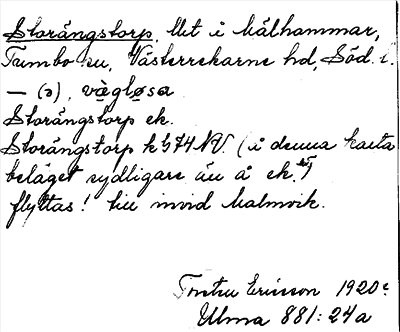 Storängstorp, Ut i Målhammar,
Tumbo sn, Västerrekarne hd, Söd. l.
— (ə), vägløsa
Storängstorp ek.
Storängstorp k 574 NV. (å denna karta
beläget sydligare än å ek.)
flyttas! till invid Malmvik.
Ericson 1920
Ulma 881:24a